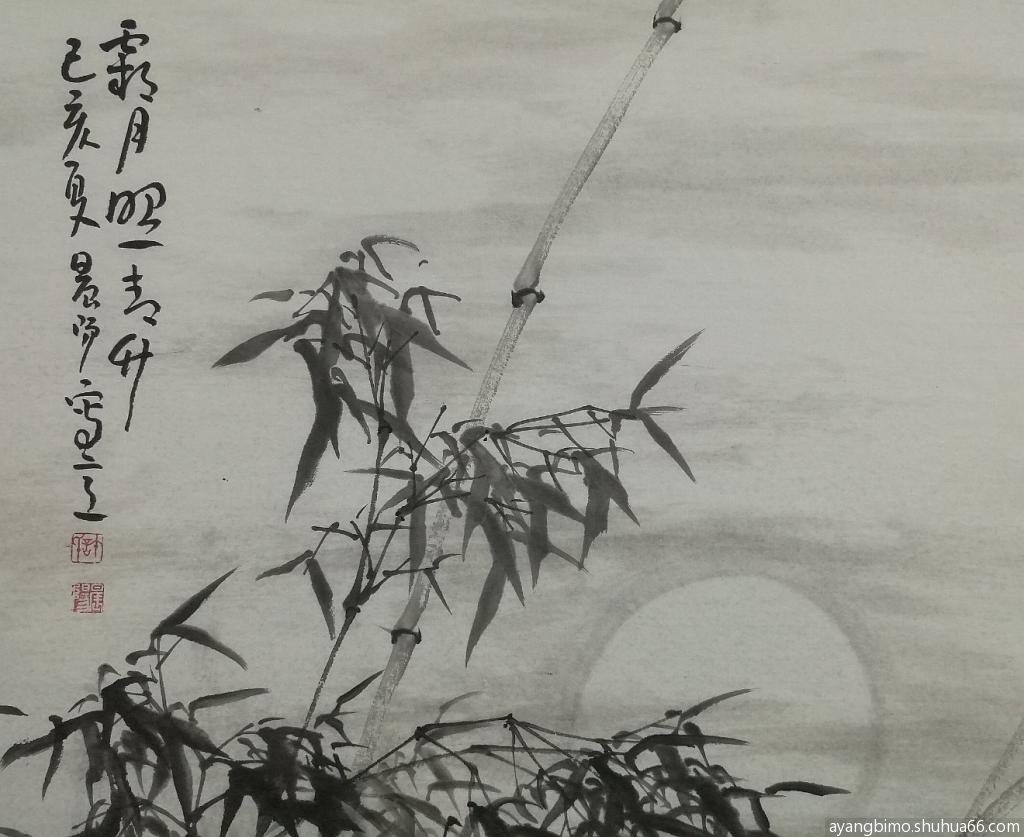 霜月照青竹
己亥夏晨阳写之
ayangbimo.shuhua66.com